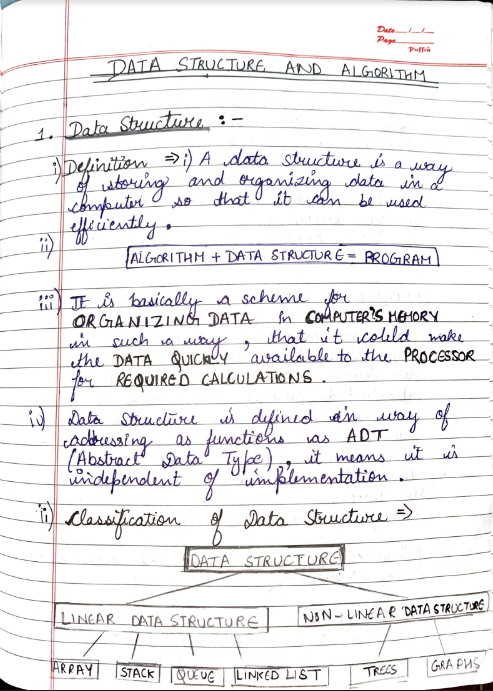 Date__/__/__
Page______
Puffin
DATA STRUCTURE AND ALGORITHM
1. Data Structure :-
i) Definition ⇒ i) A data structure is a way
of storing and organizing data in a
computer so that it can be used
efficiently.
ii) ALGORITHM + DATA STRUCTURE = PROGRAM
iii) It is basically a scheme for
ORGANIZING DATA in COMPUTER'S MEMORY
in such a way, that it could make
the DATA QUICKLY available to the PROCESSOR
for REQUIRED CALCULATIONS.
iv) Data Structure is defined in way of
addressing as functions as ADT
(Abstract Data Type), it means it is
independent of implementation.
ii) Classification of Data Structure ⇒
DATA STRUCTURE
LINEAR DATA STRUCTURE NON-LINEAR DATA STRUCTURE
ARRAY STACK QUEUE LINKED LIST TREES GRAPHS